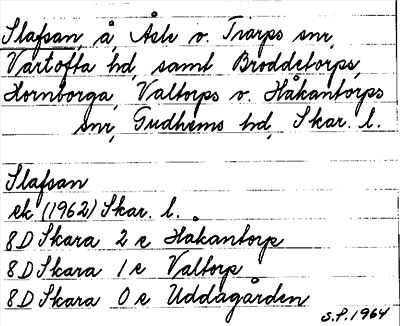 Slafsan, å Åsle o. Trarps snr,
Vartofta hd, samt Broddetorps,
Hornborga, Valtorps o. Håkantorps
snr, Gudhems hd, Skar. l.
Slafsan
ek (1962) Skar. l.
8D Skara 2 e Håkantorp
8D Skara 1 e Valtorp
8D Skara 0 e Uddagården
S.P. 1964